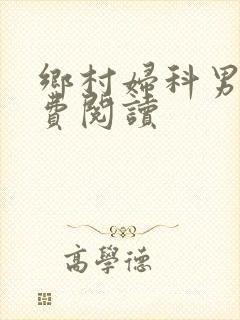 鄉村婦科男
費閱讀
高學德